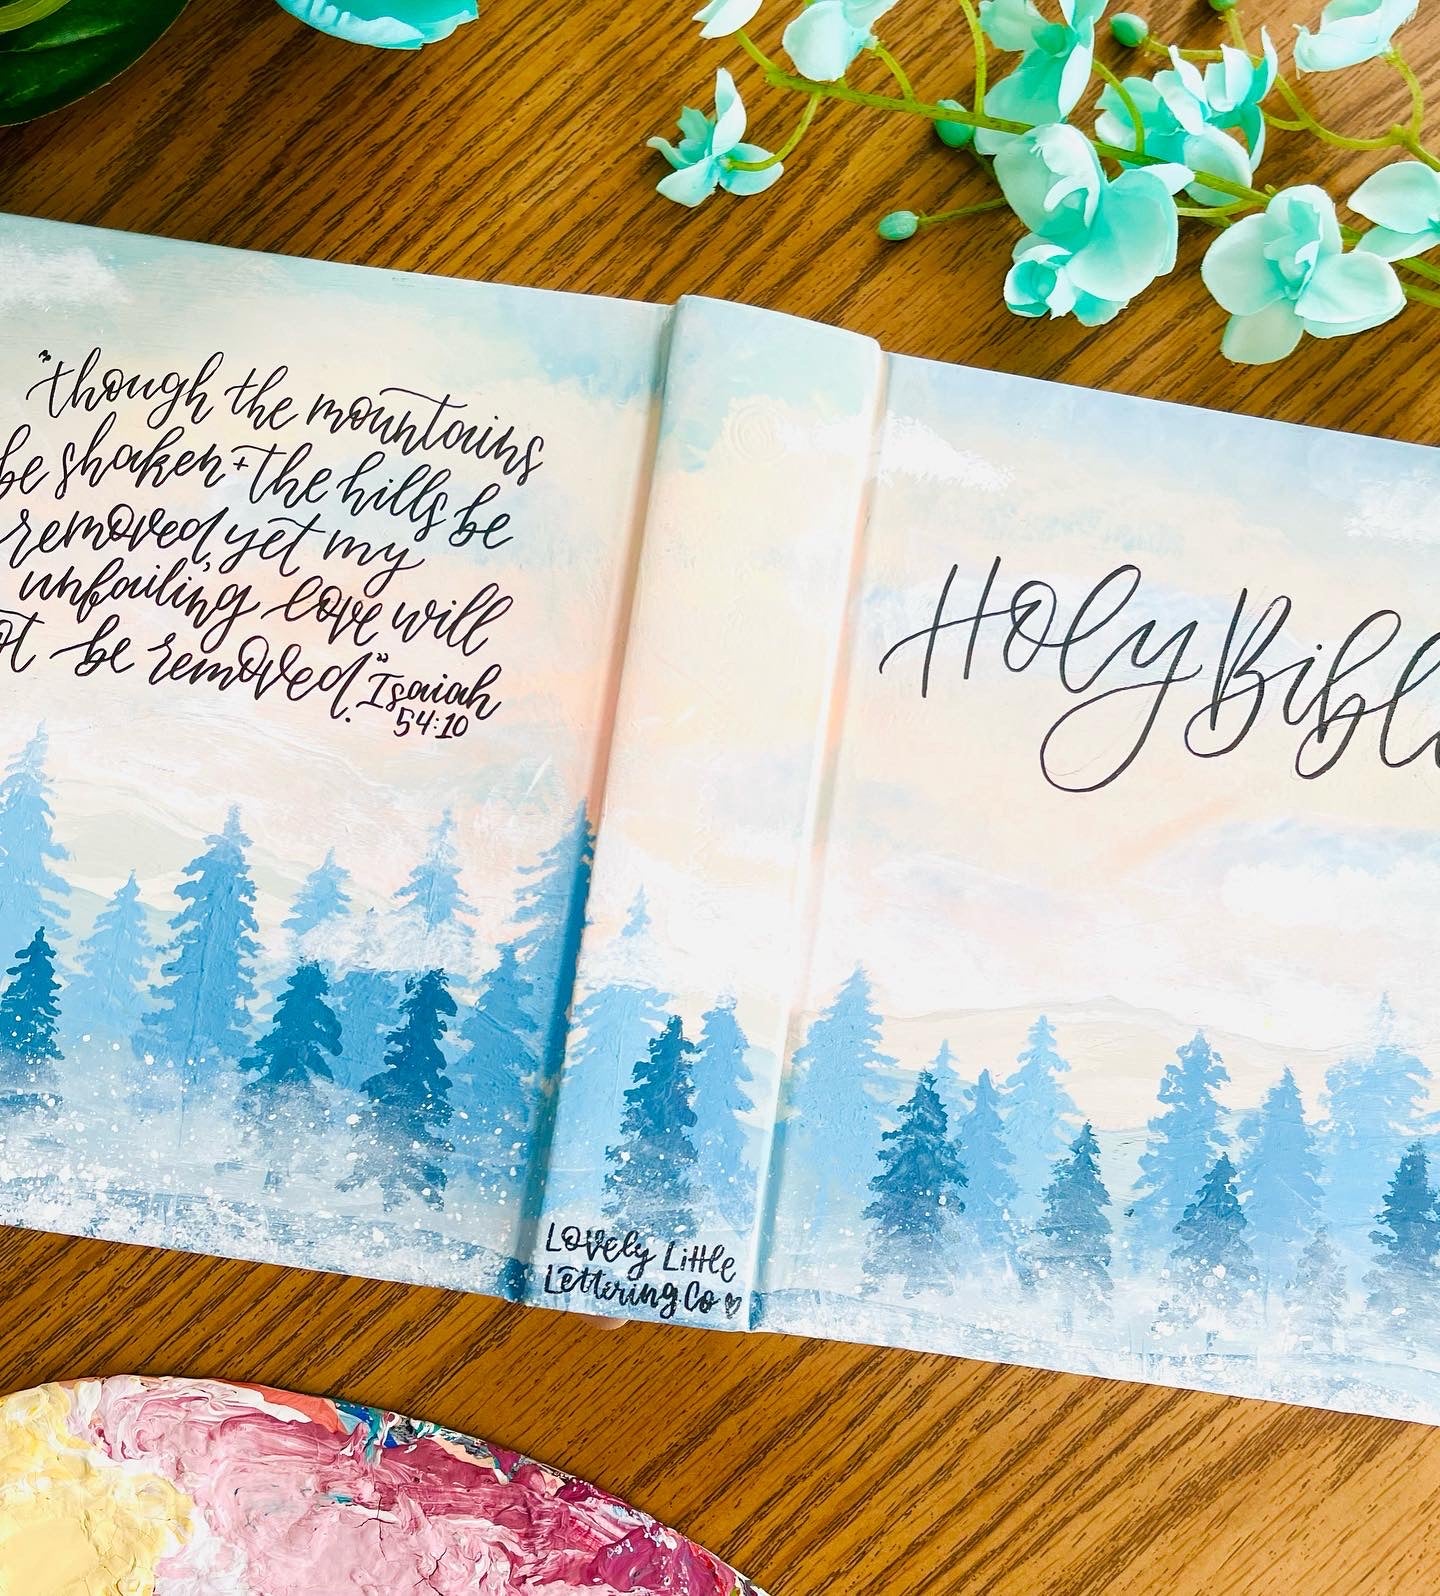 "though the mountains
be shaken + the hills be
removed, yet my
unfailing love will
ot be removed." Isaiah
54:10
Holy Bible
Lovely Little
Lettering Co